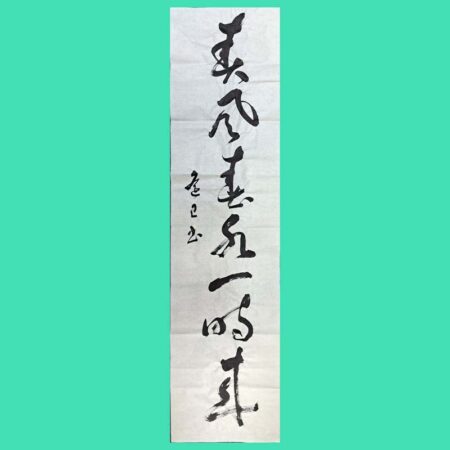 春風春水一時来